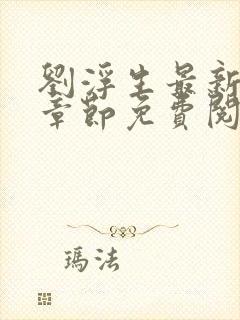 劉浮生最新
章節免費閱
瑪法